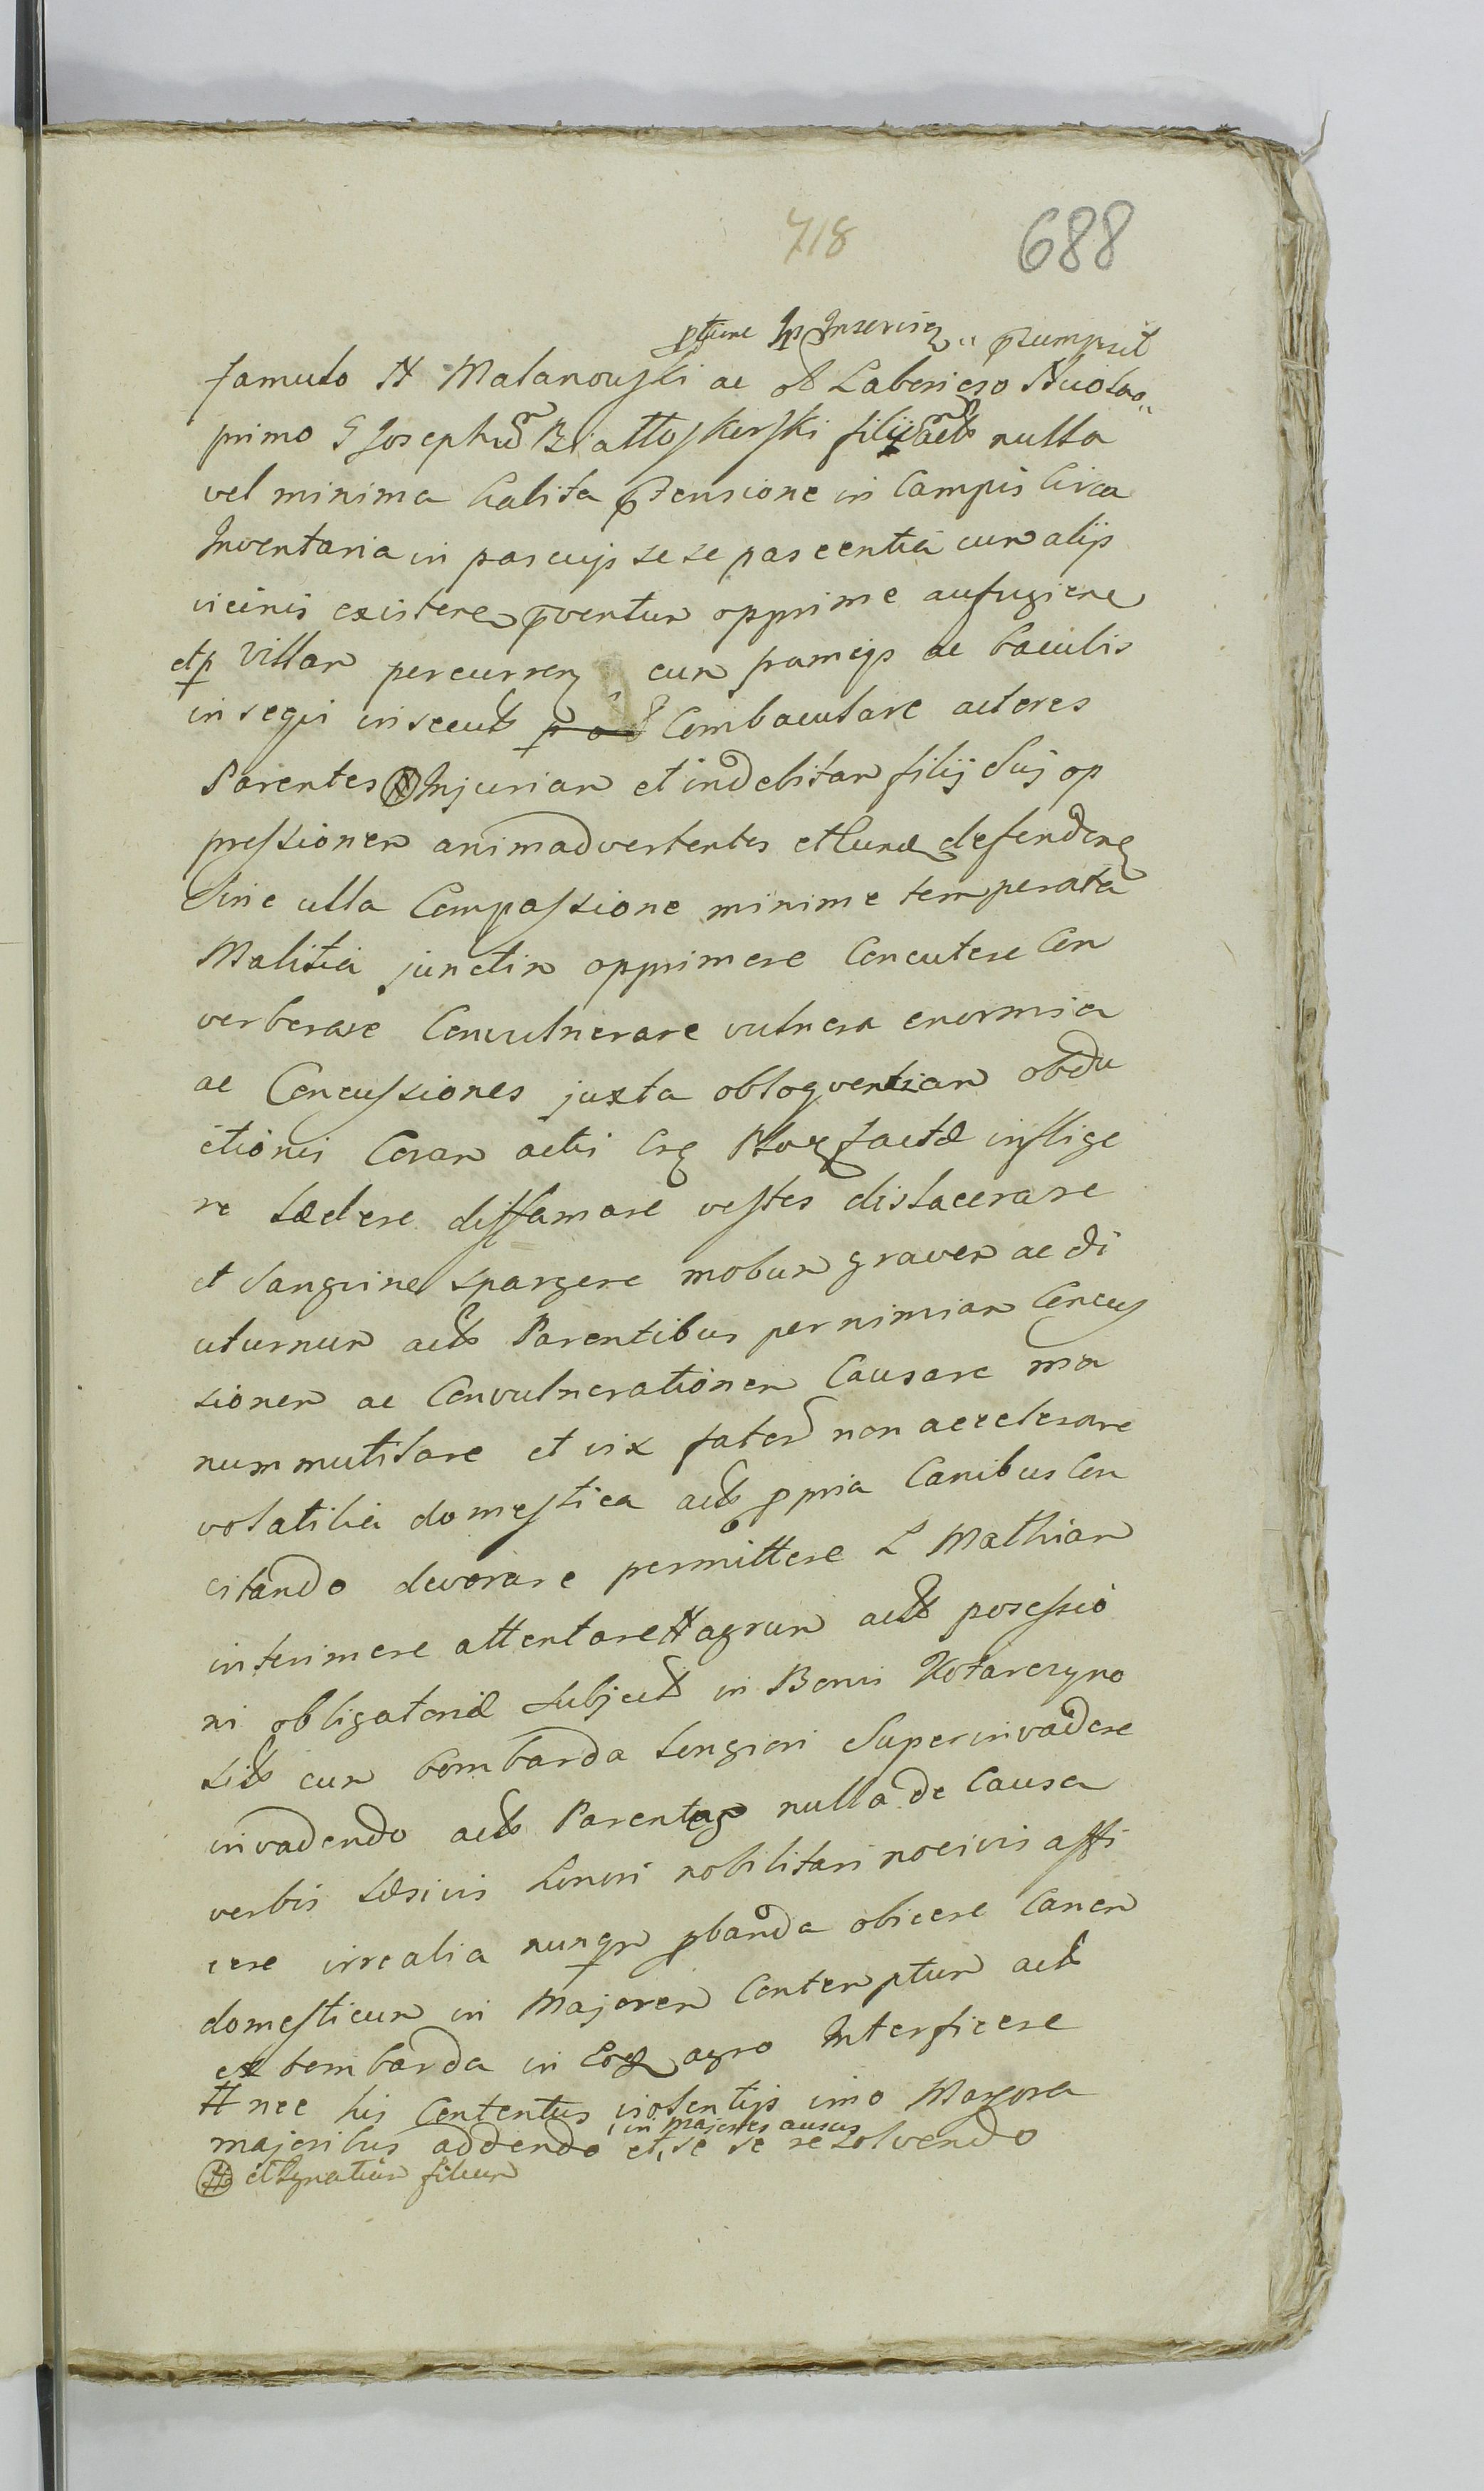 718 688
ptune Inservien praesumpsit
famulo N Malanowski ac ob Laborioso Nicolao
primo G Josephum Biattoskurski filium actis nulla
vel minima habita praetensione in Campis Circa
Inventaria in pascuijs se se pascentia cum alijs
vicinis existere oventum opprime aufugiene
et p Villam percurren cum frameijs ac baculis
insequi insecut Combaculare actores
Parentes Injuriam et indebitam filij Sui op
pressionem animadvertentes et Eund defenden
Sine ulla Compassione minime temperata
Malitia junctim opprimere Concutere Con
verberare Convulnerare vulnera enormia
ac Concussiones juxta obloquentiam obdu
ctionis Coram actis factae inflige
re laedere diffamare vestes dislacerare
et Sanguine spargere mobum gravem ac di
uturnum actis Parentibus per nimiam Concus
sionem ac Convulnerationem Causare ma
num mutilare et vix fater non accelerare
volatilia domestica actis ppria Canibus Con
citando devorare permittere L Mathiam
interimere attentare # agrum actis posessio
ni obligatoriae Subject in Bonis Kotarczyno
sitis cum bombarda longiori Superinvadere
invadendo actis Parentes nulla de Causa
verbis laesivis honori nobilitari nocivis affi
cere irrealia nunqm pbanda obicere Canem
domesticum in Majorem Contemptum actis
ex bombarda in Eo agro Interficere
# nec his Contentus violentijs imo Majora
majoribus addendo et, in majores ausus se se resolvendo
# et Ignatium filium